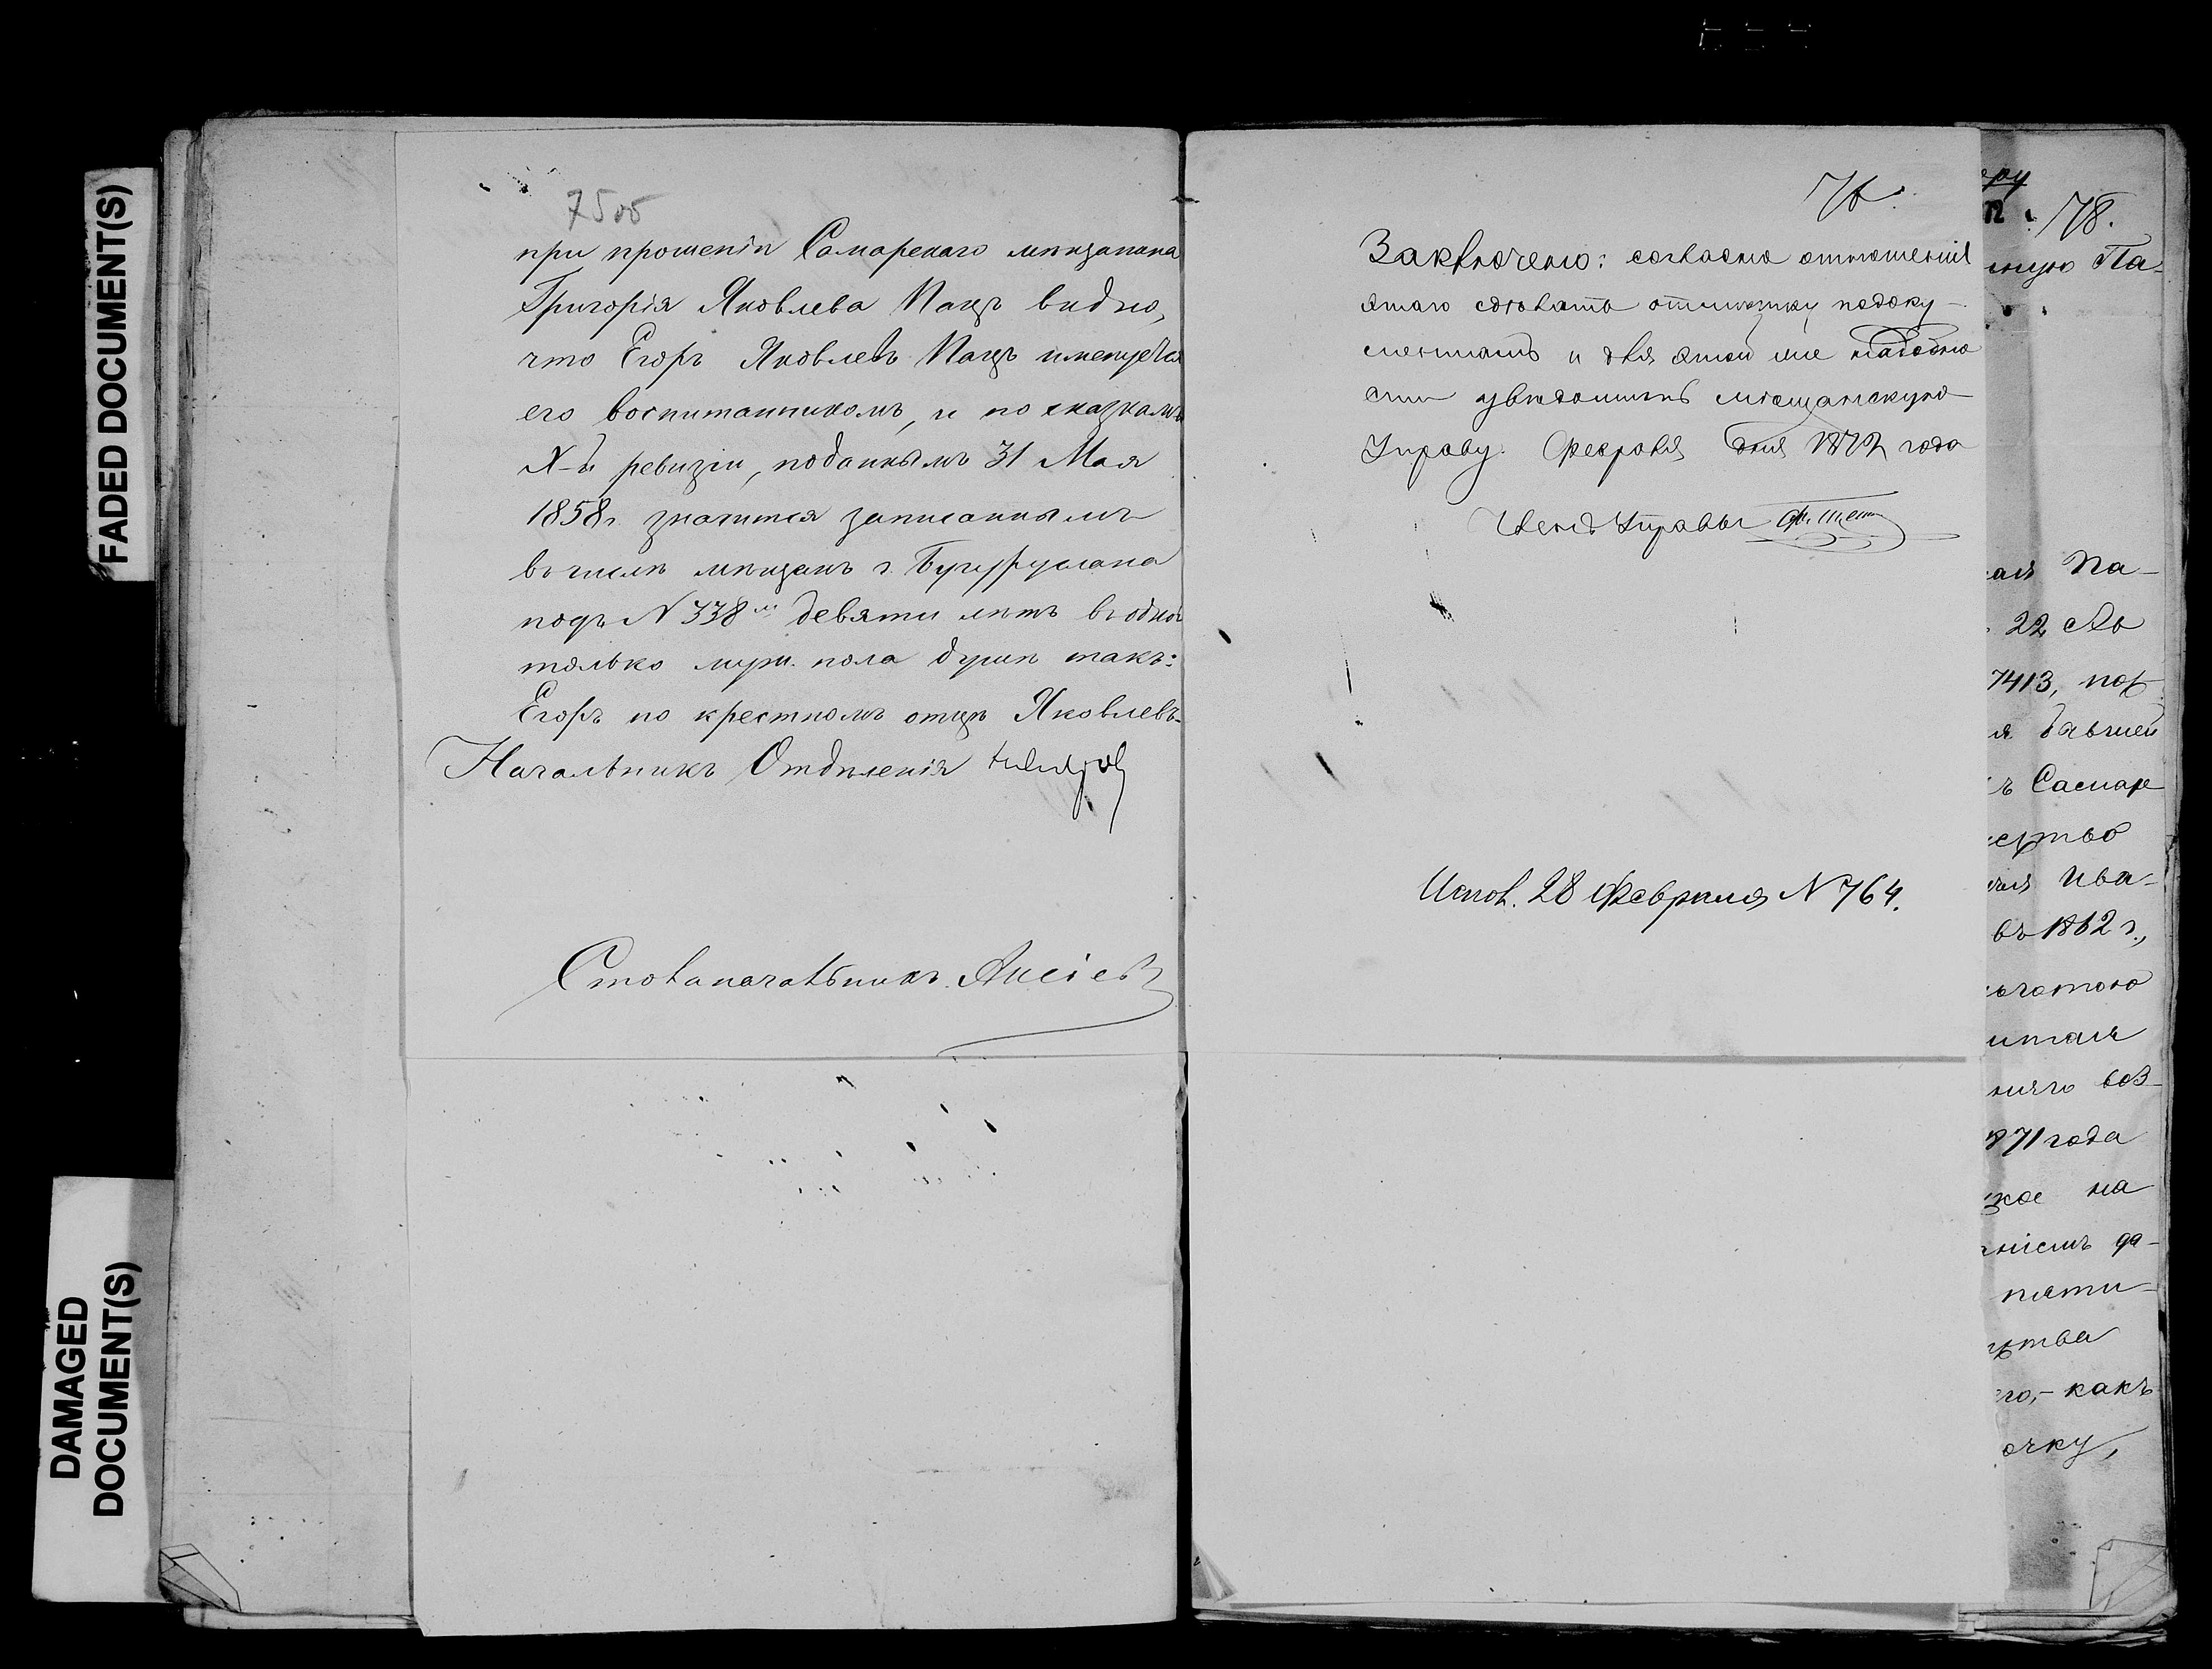 FADED DOCUMENT(S)
DAMAGED
DOCUMENT(S)
75об
при прошеніи Самарскаго мѣщанина
Григорія Яковлева Пацъ видно,
что Егоръ Яковлевъ Пацъ именуется
его воспитанникомъ, и по сказкамъ
X-й ревизіи, поданнымъ 31 Мая
1858г. значится записаннымъ
въ числѣ мѣщанъ г. Бугуруслана
подъ N 338м девяти лѣтъ въ одной
только муж. пола душѣ такъ:
Егоръ по крестномъ отцѣ Яковлевъ.
Начальникъ Отдѣленія
Столоначальникъ
76.
Заключено: согласно отношенія
этаго сдѣлать отмѣтку подоку-
ментамъ и для этой же надобно
сти увѣдомить мѣщанскую
Управу. Февраля дня 1872 года
Членъ Управы
Испол. 28 Февраля N 764.
ру
72
78.
Па-
Па-
22
7413,
бывшей
ъ Самар
ство
Ива-
въ 1862 г.,
воз-
1871 года
на
пяти-
ства
го,- какъ
очку,